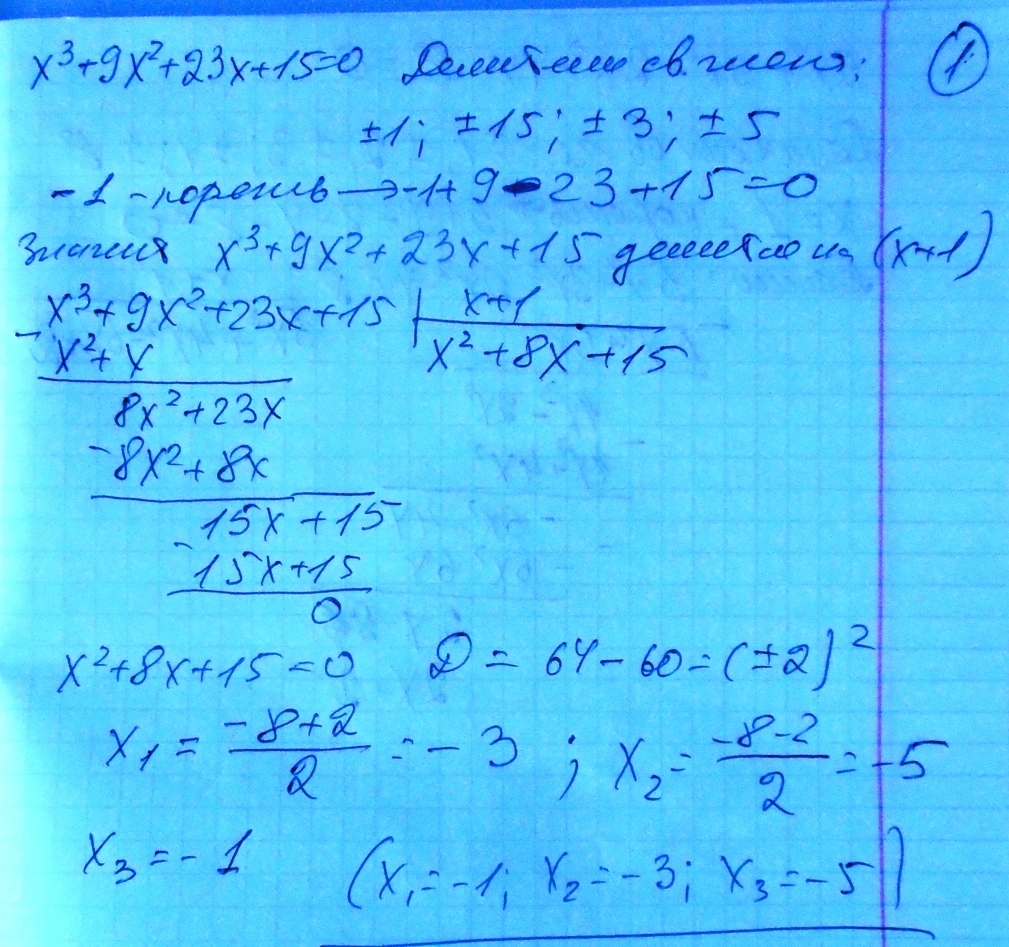 x³+9x²+23x+15=0 Делители св. члена: ①
±1; ±15; ±3; ±5
-1 - корень → -1+9-23+15=0
Значит x³+9x²+23x+15 делится на (x+1)
x³+9x²+23x+15 | x+1
- x²+x x²+8x+15
8x²+23x
- 8x²+8x
15x+15
- 15x+15
0
x²+8x+15=0 D = 64-60=(±2)²
x₁ = (-8+2)/2 = -3 ; x₂ = (-8-2)/2 = -5
x₃ = -1 (x₁=-1; x₂=-3; x₃=-5)